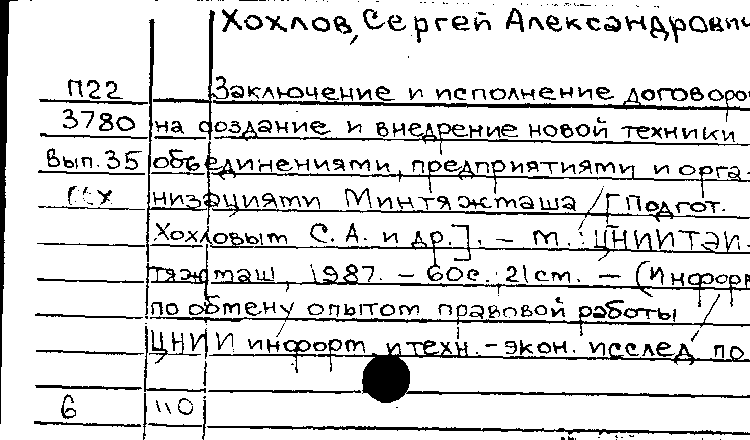 Хохлов, Сергей Александрович
П22 Заключение и исполнение договоро
3780 на создание и внедрение новой техники
Вып. 35 объединениями, предприятиями и орга-
низациями Минтяжмаша / [Подгот.
Хохловым С. А. и др.]. – М. : ЦНИИТЭИ-
тяжмаш, 1987. – 60с.; 21см. – (Информ
по обмену опытом правовой работы /
ЦНИИ информ. и техн.-экон. исслед по
6 110